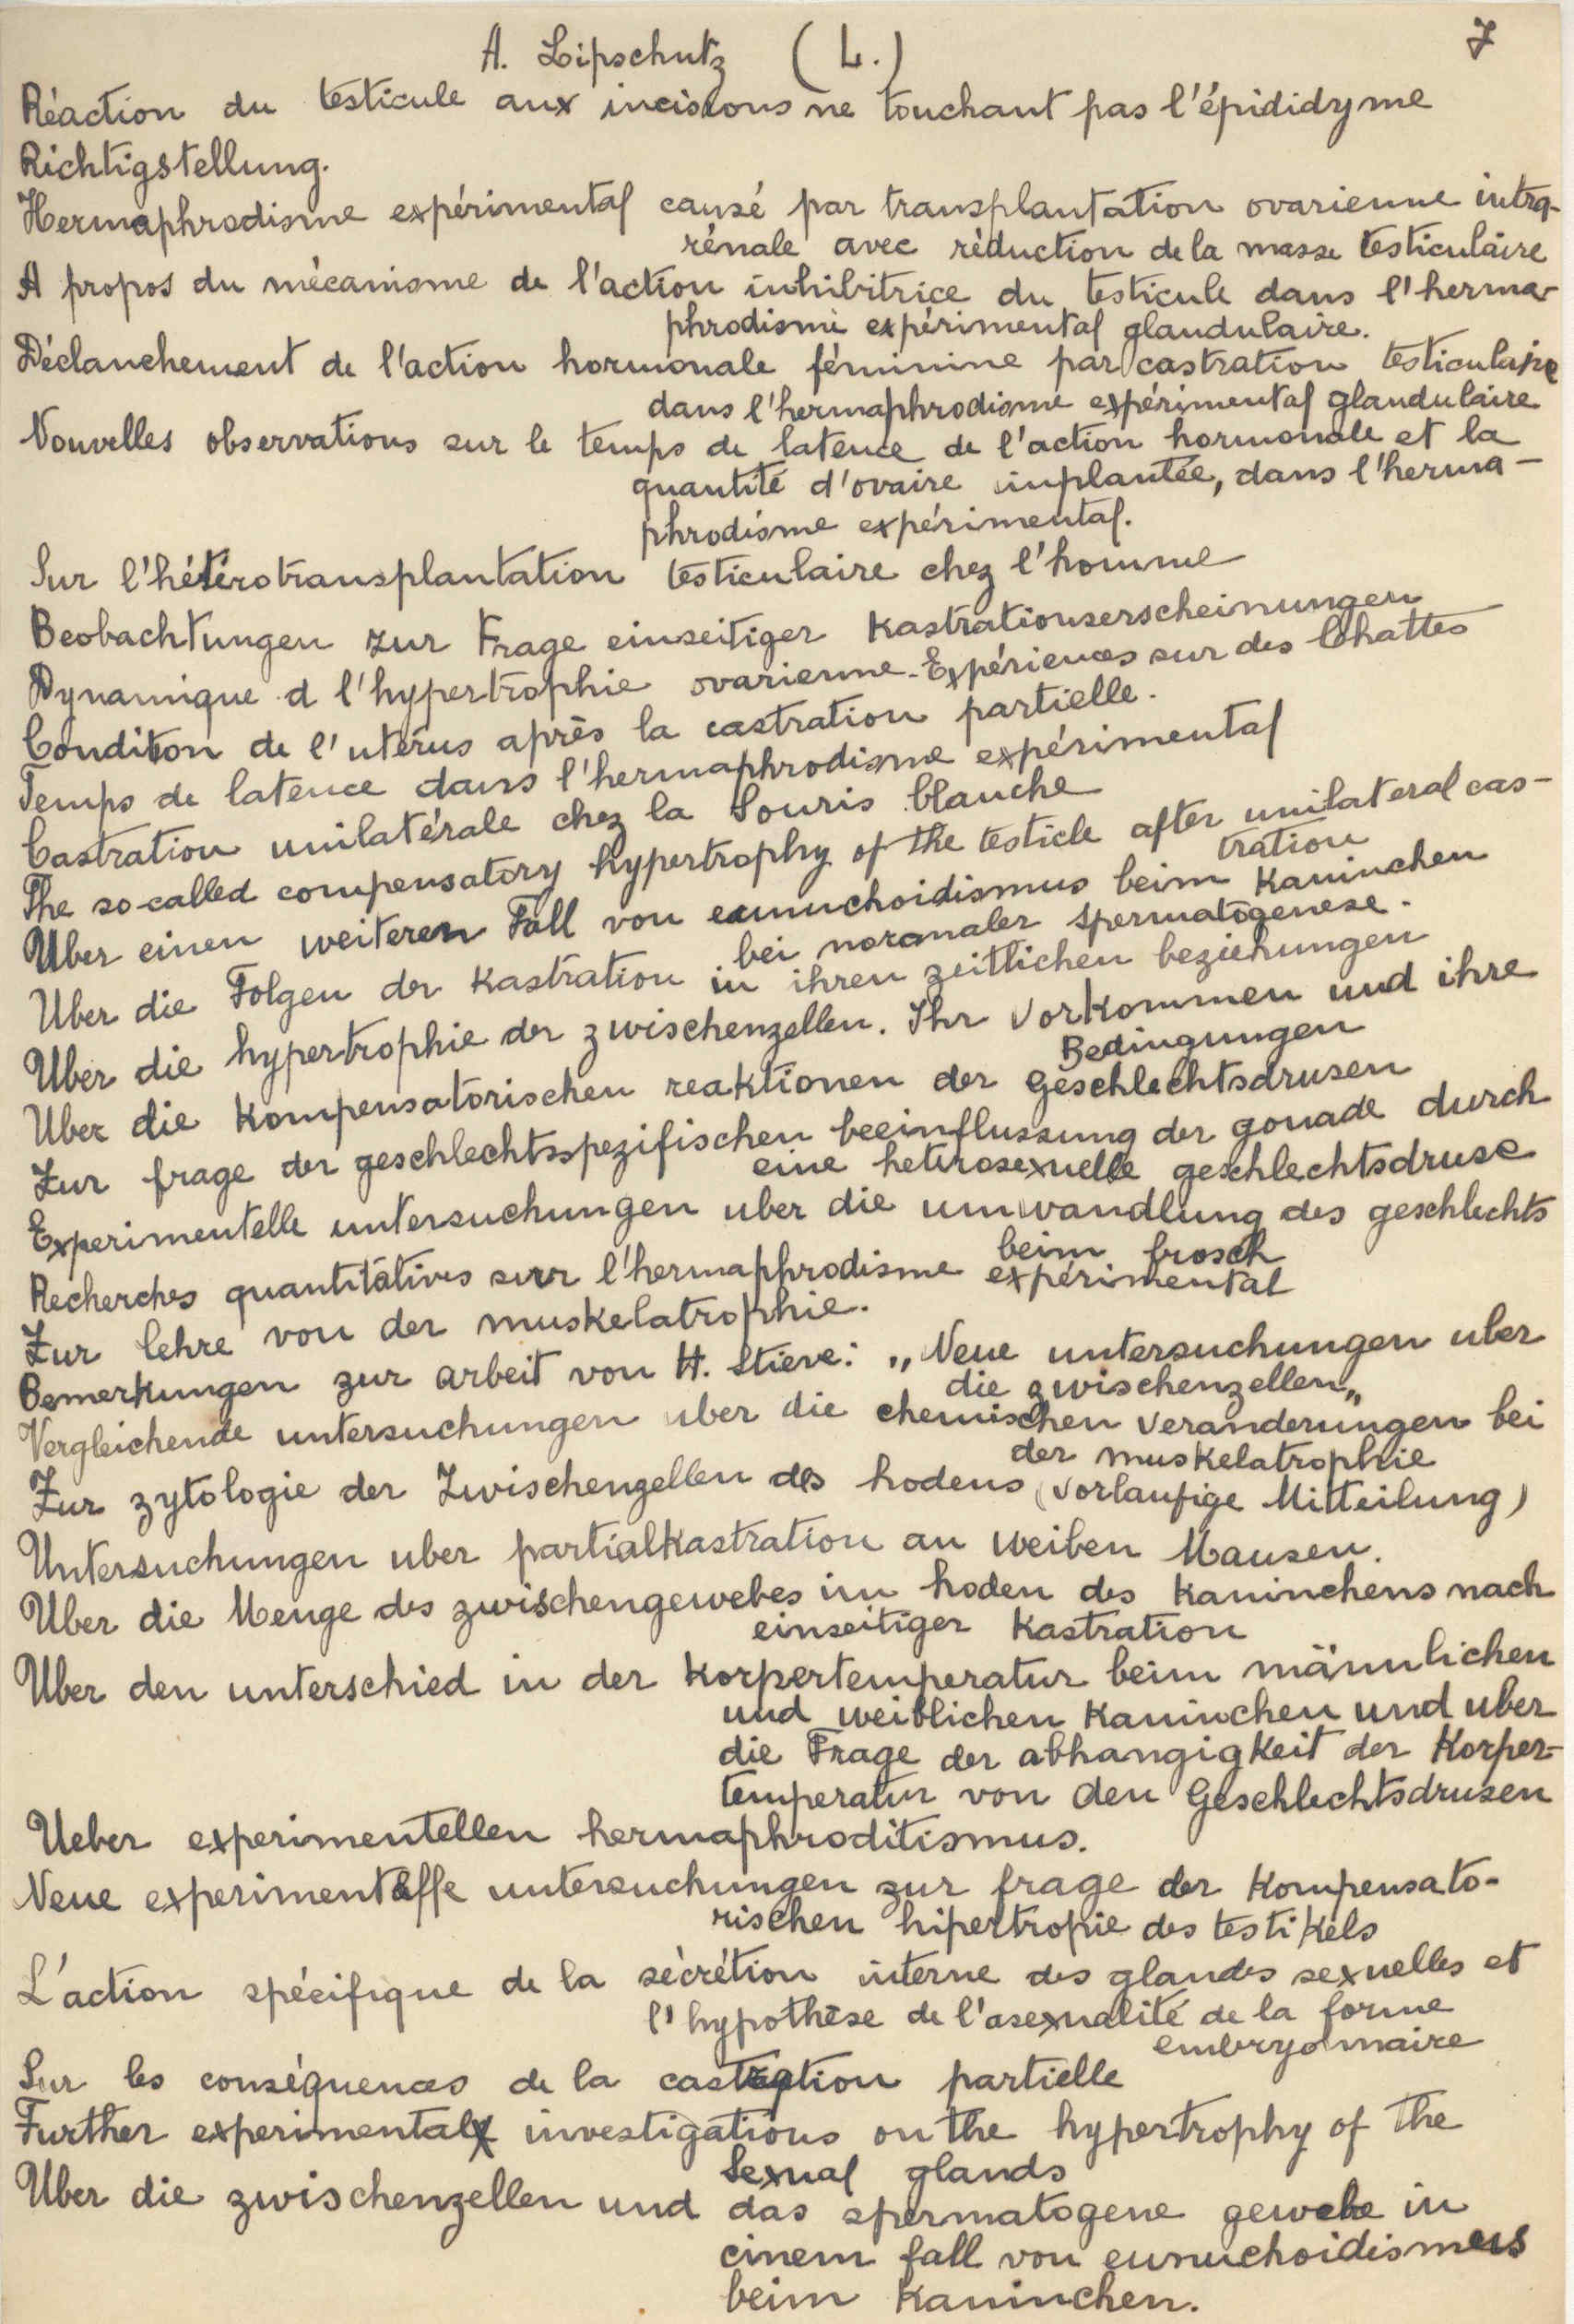 A. Lipschutz (L.) 7
Réaction du testicule aux incisions ne touchant pas l'épididyme
Richtigstellung.
Hermaphrodisme expérimental causé par transplantation ovarienne intra-
rénale avec réduction de la masse testiculaire
A propos du mécanisme de l'action inhibitrice du testicule dans l'herma-
phrodisme expérimental glandulaire.
Déclanchement de l'action hormonale féminine par castration testiculaire
dans l'hermaphrodisme expérimental glandulaire
Nouvelles observations sur le temps de latence de l'action hormonale et la
quantité d'ovaire inplantée, dans l'herma-
phrodisme expérimental.
Sur l'hétérotransplantation testiculaire chez l'homme
Beobachtungen zur Frage einseitiger Kastrationserscheinungen
Dynamique d l'hypertrophie ovarienne - Expériences sur des Chattes
Conditon de l'utérus après la castration partielle.
Temps de latence dans l'hermaphrodisme expérimental
Castration unilatérale chez la Souris blanche
The so-called compensatory hypertrophy of the testicle after unilateral cas-
tration
Uber einen weiteren Fall von eunuchoidismus beim Kaninchen
bei noramaler spermatogenese.
Uber die Folgen der Kastration in ihren zeitlichen beziehungen
Uber die hypertrophie der zwischenzellen. Ihr Vorkommen und ihre
Bedingungen
Uber die Kompensatorischen reaktionen der Geschlechtsdrusen
Zur frage der geschlechtsspezifischen beeinflussung der gonade durch
eine heterosexuelle geschlechtsdruse
Experimentelle untersuchungen uber die umwandlung des geschlechts
beim frosch
Recherches quantitatives surr l'hermaphrodisme expérimental
Zur lehre von der muskelatrophie.
Bemerkungen zur arbeit von H. Stieve: „Neue untersuchungen uber
die zwischenzellen„
Vergleichende untersuchungen uber die chemischen veranderungen bei
der muskelatrophie
Zur zytologie der Zwischenzellen des hodens (vorlaufige Mitteilung)
Untersuchungen uber partialkastration an weiben Mausen.
Uber die Menge des zwischengewebes im hoden des Kaninchens nach
einseitiger Kastration
Uber den unterschied in der Korpertemperatur beim männlichen
und weiblichen Kaninchen und uber
die Frage der abhangigkeit der Korper-
temperatur von den Geschlechtsdrusen
Ueber experimentellen hermaphroditismus.
Neue experimentelle untersuchungen zur frage der Kompensato-
rischen hipertropie des testikels
L'action spécifique de la sécrétion interne des glandes sexuelles et
l'hypothèse de l'asexualité de la forme
embryonnaire
Sur les conséquences de la castration partielle
Further experimental investigations on the hypertrophy of the
Sexual glands
Uber die zwischenzellen und das spermatogene gewebe in
einem fall von eunuchoidismus
beim Kaninchen.